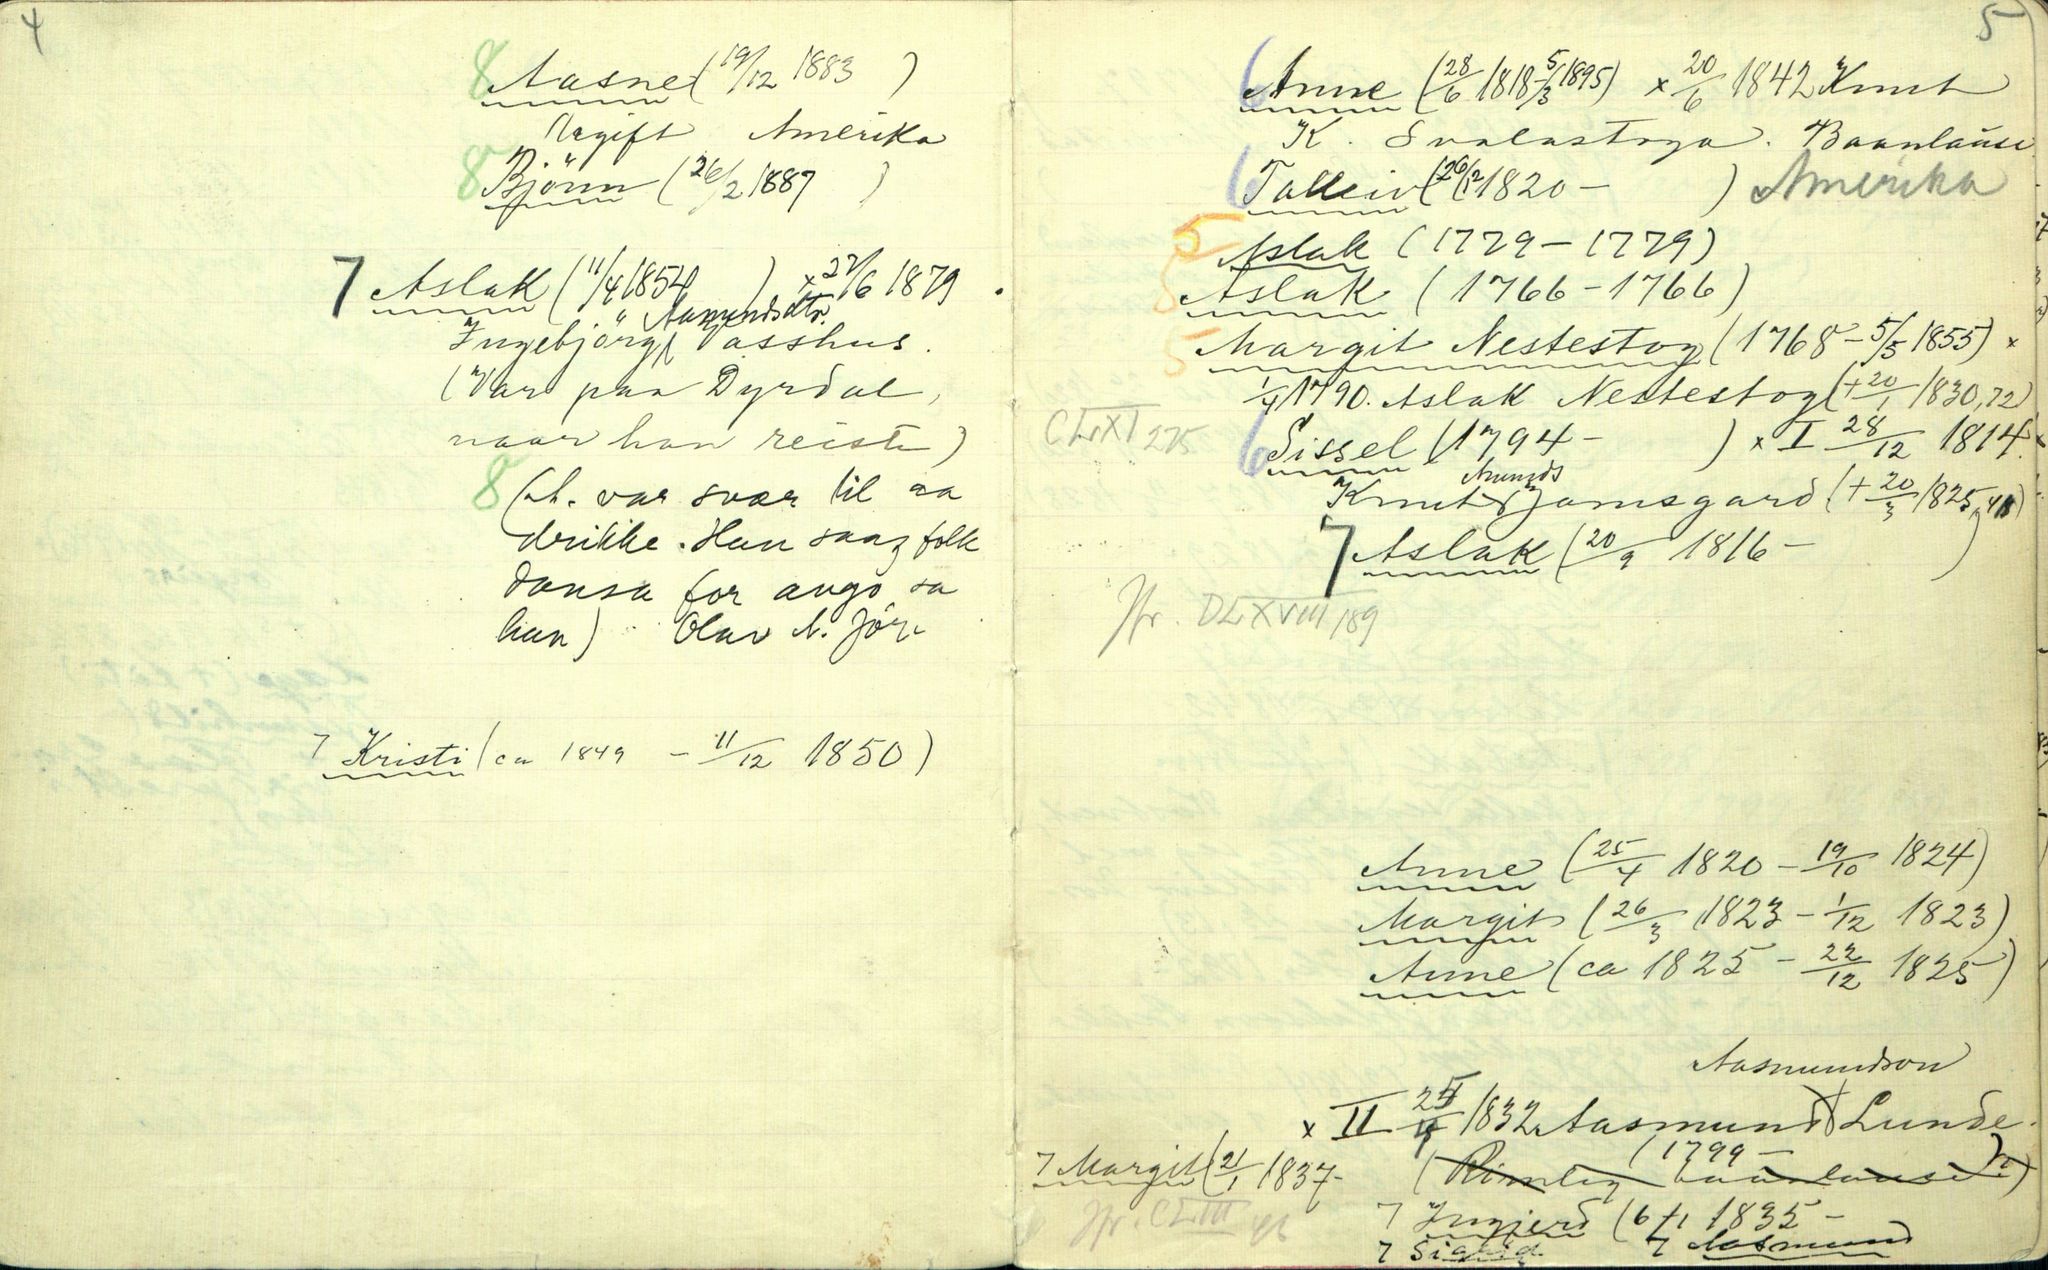 4
8 Aasne (19/12 1883 )
Ugift Amerika
8 Björn (26/2 1887 )
7 Aslak (11/4 1854 ) x 27/6 1879
Aasmundsdtr.
Ingebjörg Vasshus.
(Var paa Dyrdal,
naar han reiste)
8 (A. var svær til aa
drikke. Han saag folk
dansa for augo sa
han) Olav A. Jör.
7 Kristi (ca 1849 - 11/12 1850)
5
6 Anne (28/6 1818 - 5/3 1895) x 20/6 1842 Knut
K. Svalastoga. Baanlause
6 Talleiv (26/12 1820 - ) Amerika
5 Aslak (1779 - 1779)
5 Aslak (1766 - 1766)
5 Margit Nestestog (1768 - 5/5 1855) x
1/4 1790. Aslak Nestestog (+ 20/1 1830, 72)
CLXI 275
6 Sissel (1794 - ) x I 28/12 1814.
Aamunds
Knut Gjamsgard (+ 20/3 1825, 41)
7 Aslak (20/9 1816 - )
Jfr. DLXVIII 189
Anne (25/4 1820 - 19/10 1824)
Margit (26/3 1823 - 1/12 1823)
Anne (ca 1825 - 22/12 1825)
Aasmundson
x II 1832 Aasmund Lunde.
(1799 - )
(Rimelig baanlause)
7 Margit (21/1 1837-
Jfr. CLIII 46
7 Ingjerd (6/1 1835 -
7 Sigrid 7 Aasmund